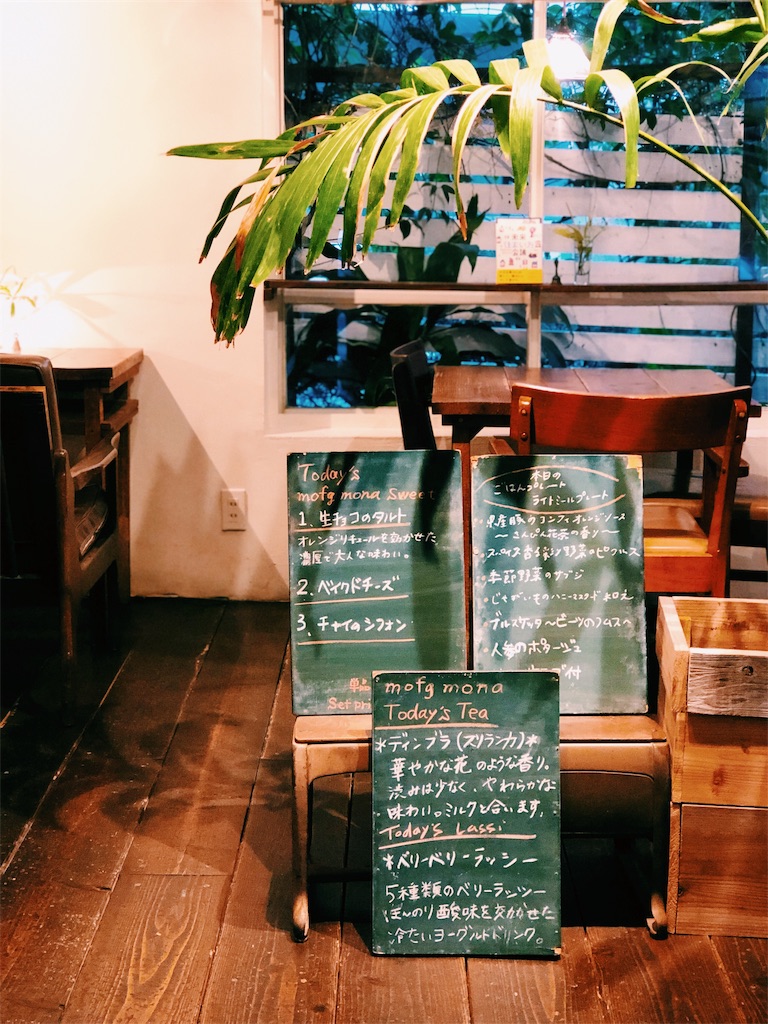 Today's
mofg mona Sweet
1、生チョコのタルト
オレンジリキュールを効かせた
濃厚で大人な味わい。
2、ベイクドチーズ
3、チャイのシフォン
単品
Set pri
本日の
ごはんプレート
ライトミールプレート
豚のコンフィオレンジソース
〜さんぴん花茶の香り〜
野菜のピクルス
季節野菜のサブジ
じゃがいものハニーマスタード和え
ブルスケッタ〜ビーツのフムス〜
人参のポタージュ
付
mofg mona
Today's Tea
*ディンブラ(スリランカ)*
華やかな花のような香り。
渋みは少なく、やわらかな
味わい。ミルクと合います。
Today's Lassi
*ベリーベリーラッシー
5種類のベリーラッシー
ほんのり酸味を効かせた
冷たいヨーグルトドリンク。